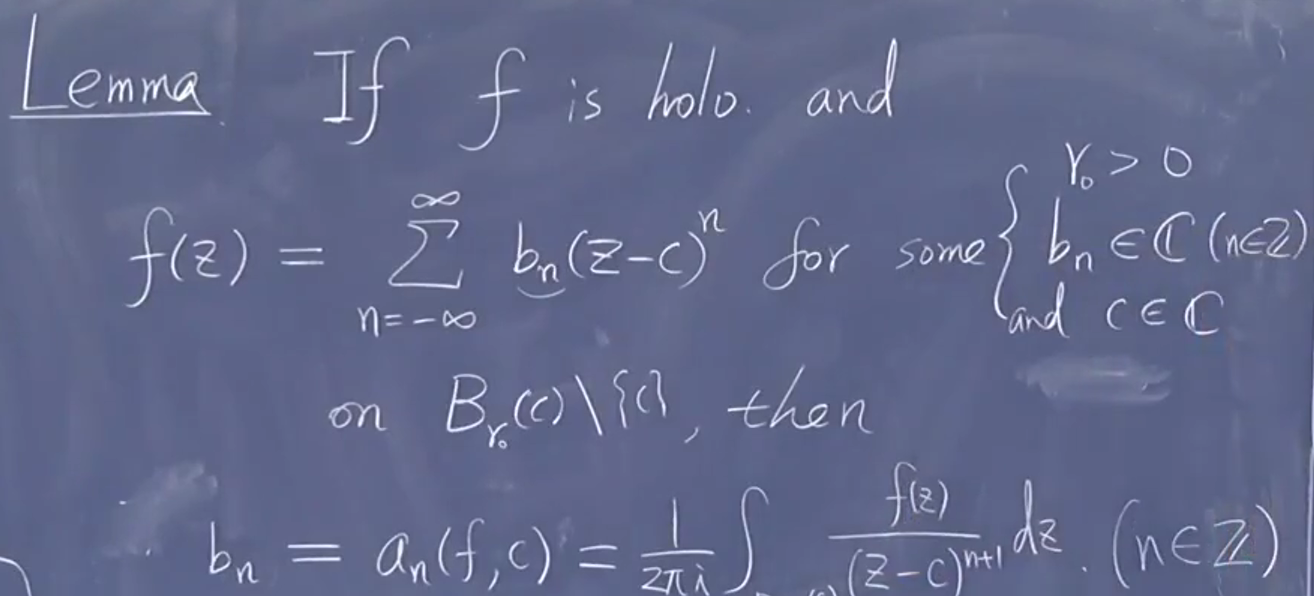 Lemma If f is holo. and
f(z) = ∑_{n=-∞}^{∞} b_n (z-c)^n for some { r_0 > 0
b_n ∈ ℂ (n∈ℤ)
and c ∈ ℂ
on B_{r_0}(c)\{c}, then
b_n = a_n(f,c) = \frac{1}{2πi} ∫ \frac{f(z)}{(z-c)^{n+1}} dz. (n∈ℤ)